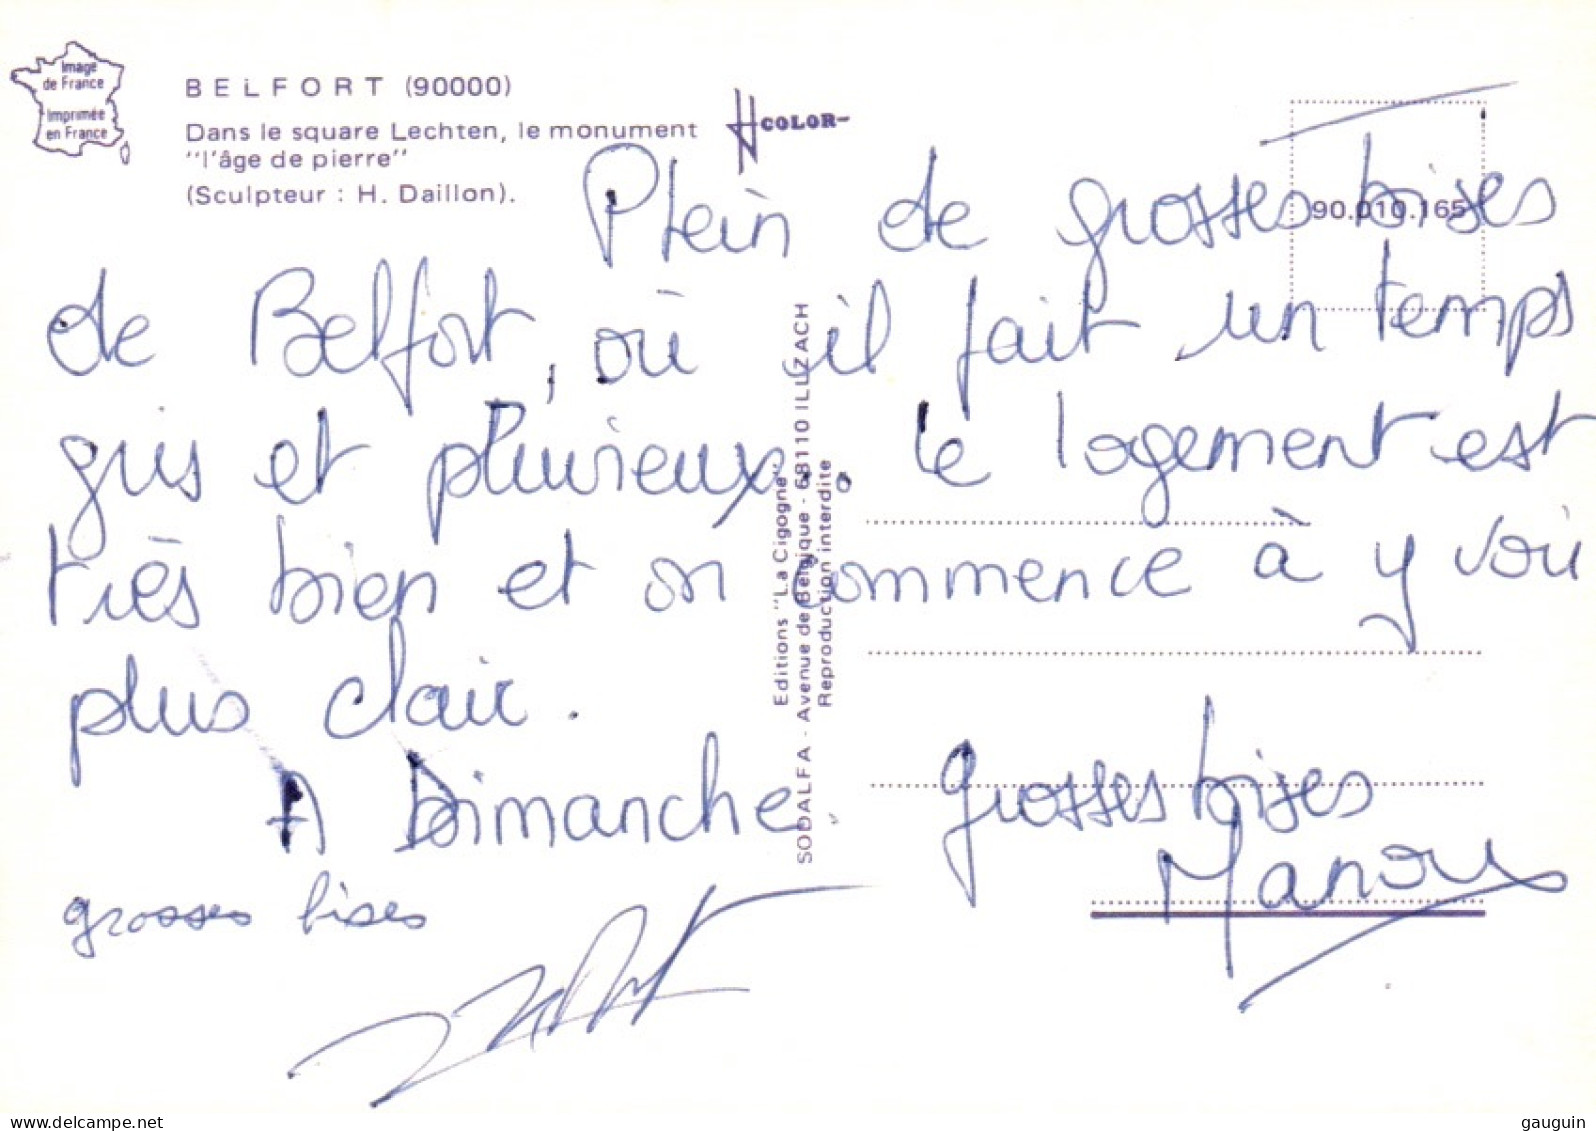 Image
de France
Imprimée
en France
BELFORT (90000)
Dans le square Lechten, le monument
"l'âge de pierre"
(Sculpteur : H. Daillon).
COLOR-
90.010.165
Plein de grosses bises
de Belfort, où il fait un temps
gris et pluvieux. Le logement est
très bien et on commence à y voir
plus clair.
A Dimanche.
grosses bises
Manou
grosses bises
Editions "La Cigogne"
SODALFA - Avenue de Belgique - 68110 ILLZACH
Reproduction interdite
www.delcampe.net
gauguin